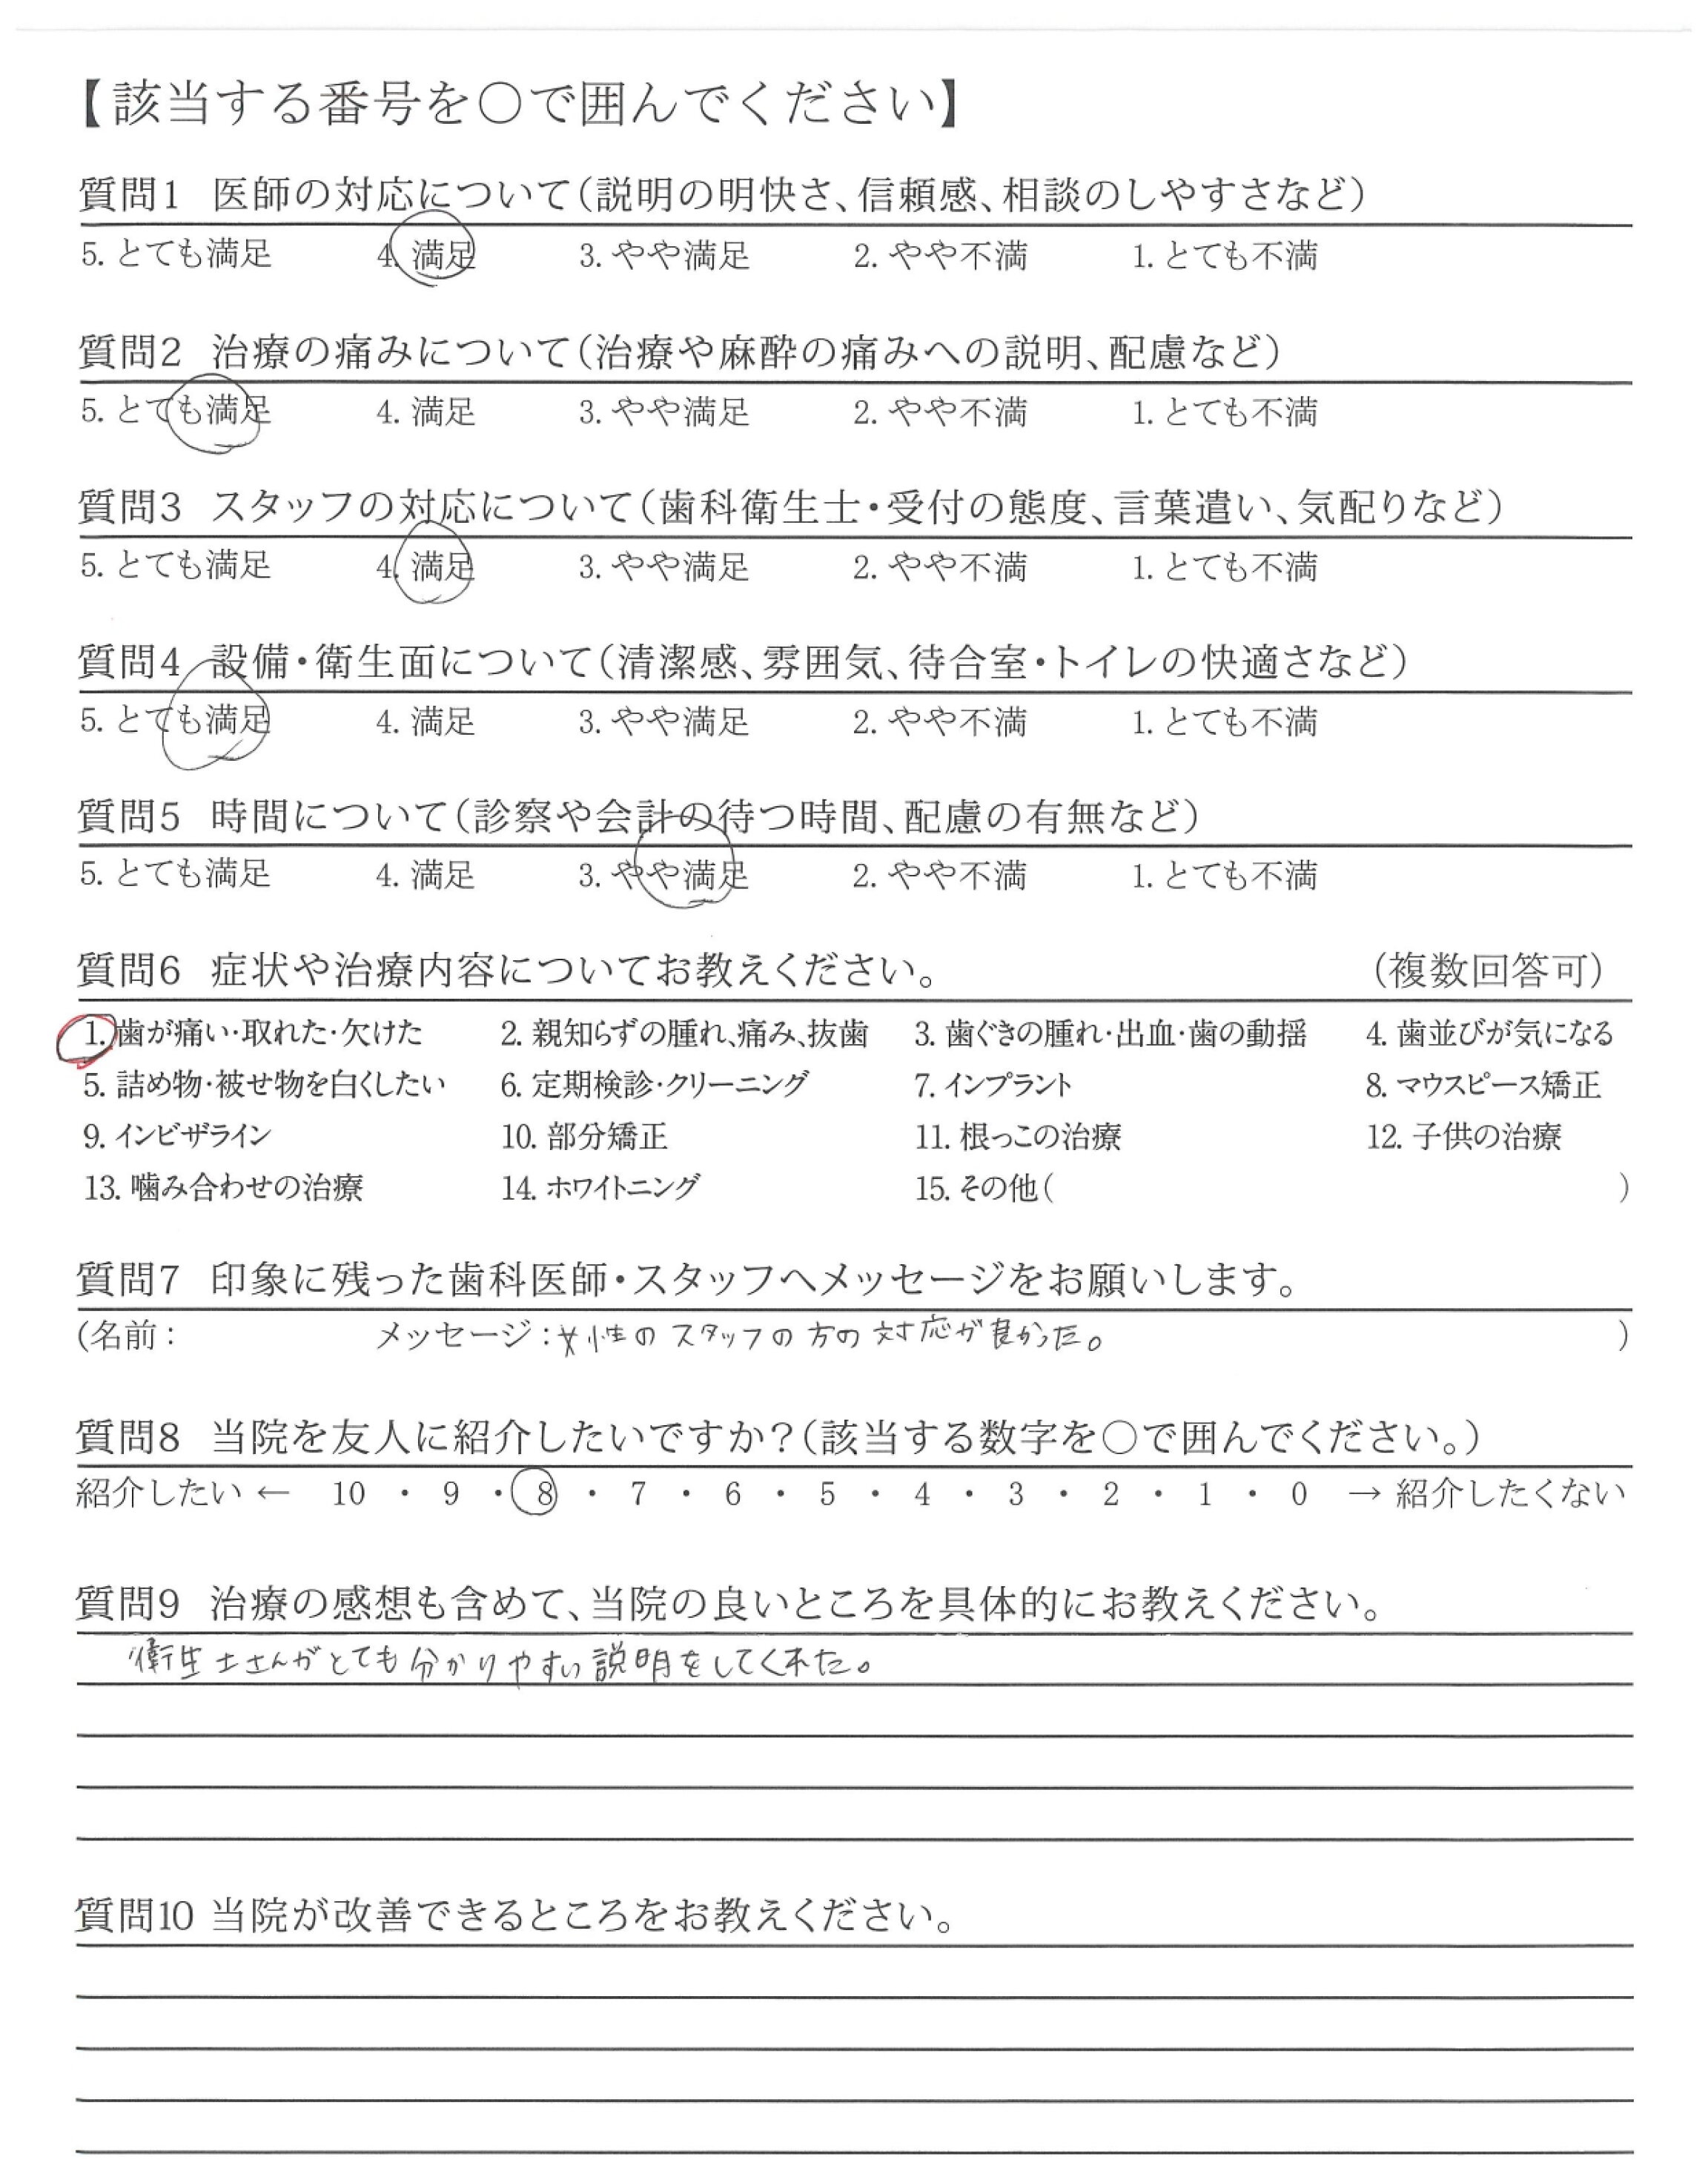 【該当する番号を〇で囲んでください】
質問1 医師の対応について(説明の明快さ、信頼感、相談のしやすさなど)
5. とても満足 4. 満足 3. やや満足 2. やや不満 1. とても不満
質問2 治療の痛みについて(治療や麻酔の痛みへの説明、配慮など)
5. とても満足 4. 満足 3. やや満足 2. やや不満 1. とても不満
質問3 スタッフの対応について(歯科衛生士・受付の態度、言葉遣い、気配りなど)
5. とても満足 4. 満足 3. やや満足 2. やや不満 1. とても不満
質問4 設備・衛生面について(清潔感、雰囲気、待合室・トイレの快適さなど)
5. とても満足 4. 満足 3. やや満足 2. やや不満 1. とても不満
質問5 時間について(診察や会計の待つ時間、配慮の有無など)
5. とても満足 4. 満足 3. やや満足 2. やや不満 1. とても不満
質問6 症状や治療内容についてお教えください。 (複数回答可)
1. 歯が痛い・取れた・欠けた 2. 親知らずの腫れ、痛み、抜歯 3. 歯ぐきの腫れ・出血・歯の動揺 4. 歯並びが気になる
5. 詰め物・被せ物を白くしたい 6. 定期検診・クリーニング 7. インプラント 8. マウスピース矯正
9. インビザライン 10. 部分矯正 11. 根っこの治療 12. 子供の治療
13. 噛み合わせの治療 14. ホワイトニング 15. その他( )
質問7 印象に残った歯科医師・スタッフへメッセージをお願いします。
(名前: メッセージ:女性のスタッフの方の対応が良かった。 )
質問8 当院を友人に紹介したいですか?(該当する数字を〇で囲んでください。)
紹介したい ← 10 ・ 9 ・ 8 ・ 7 ・ 6 ・ 5 ・ 4 ・ 3 ・ 2 ・ 1 ・ 0 → 紹介したくない
質問9 治療の感想も含めて、当院の良いところを具体的にお教えください。
衛生士さんがとても分かりやすい説明をしてくれた。
質問10 当院が改善できるところをお教えください。